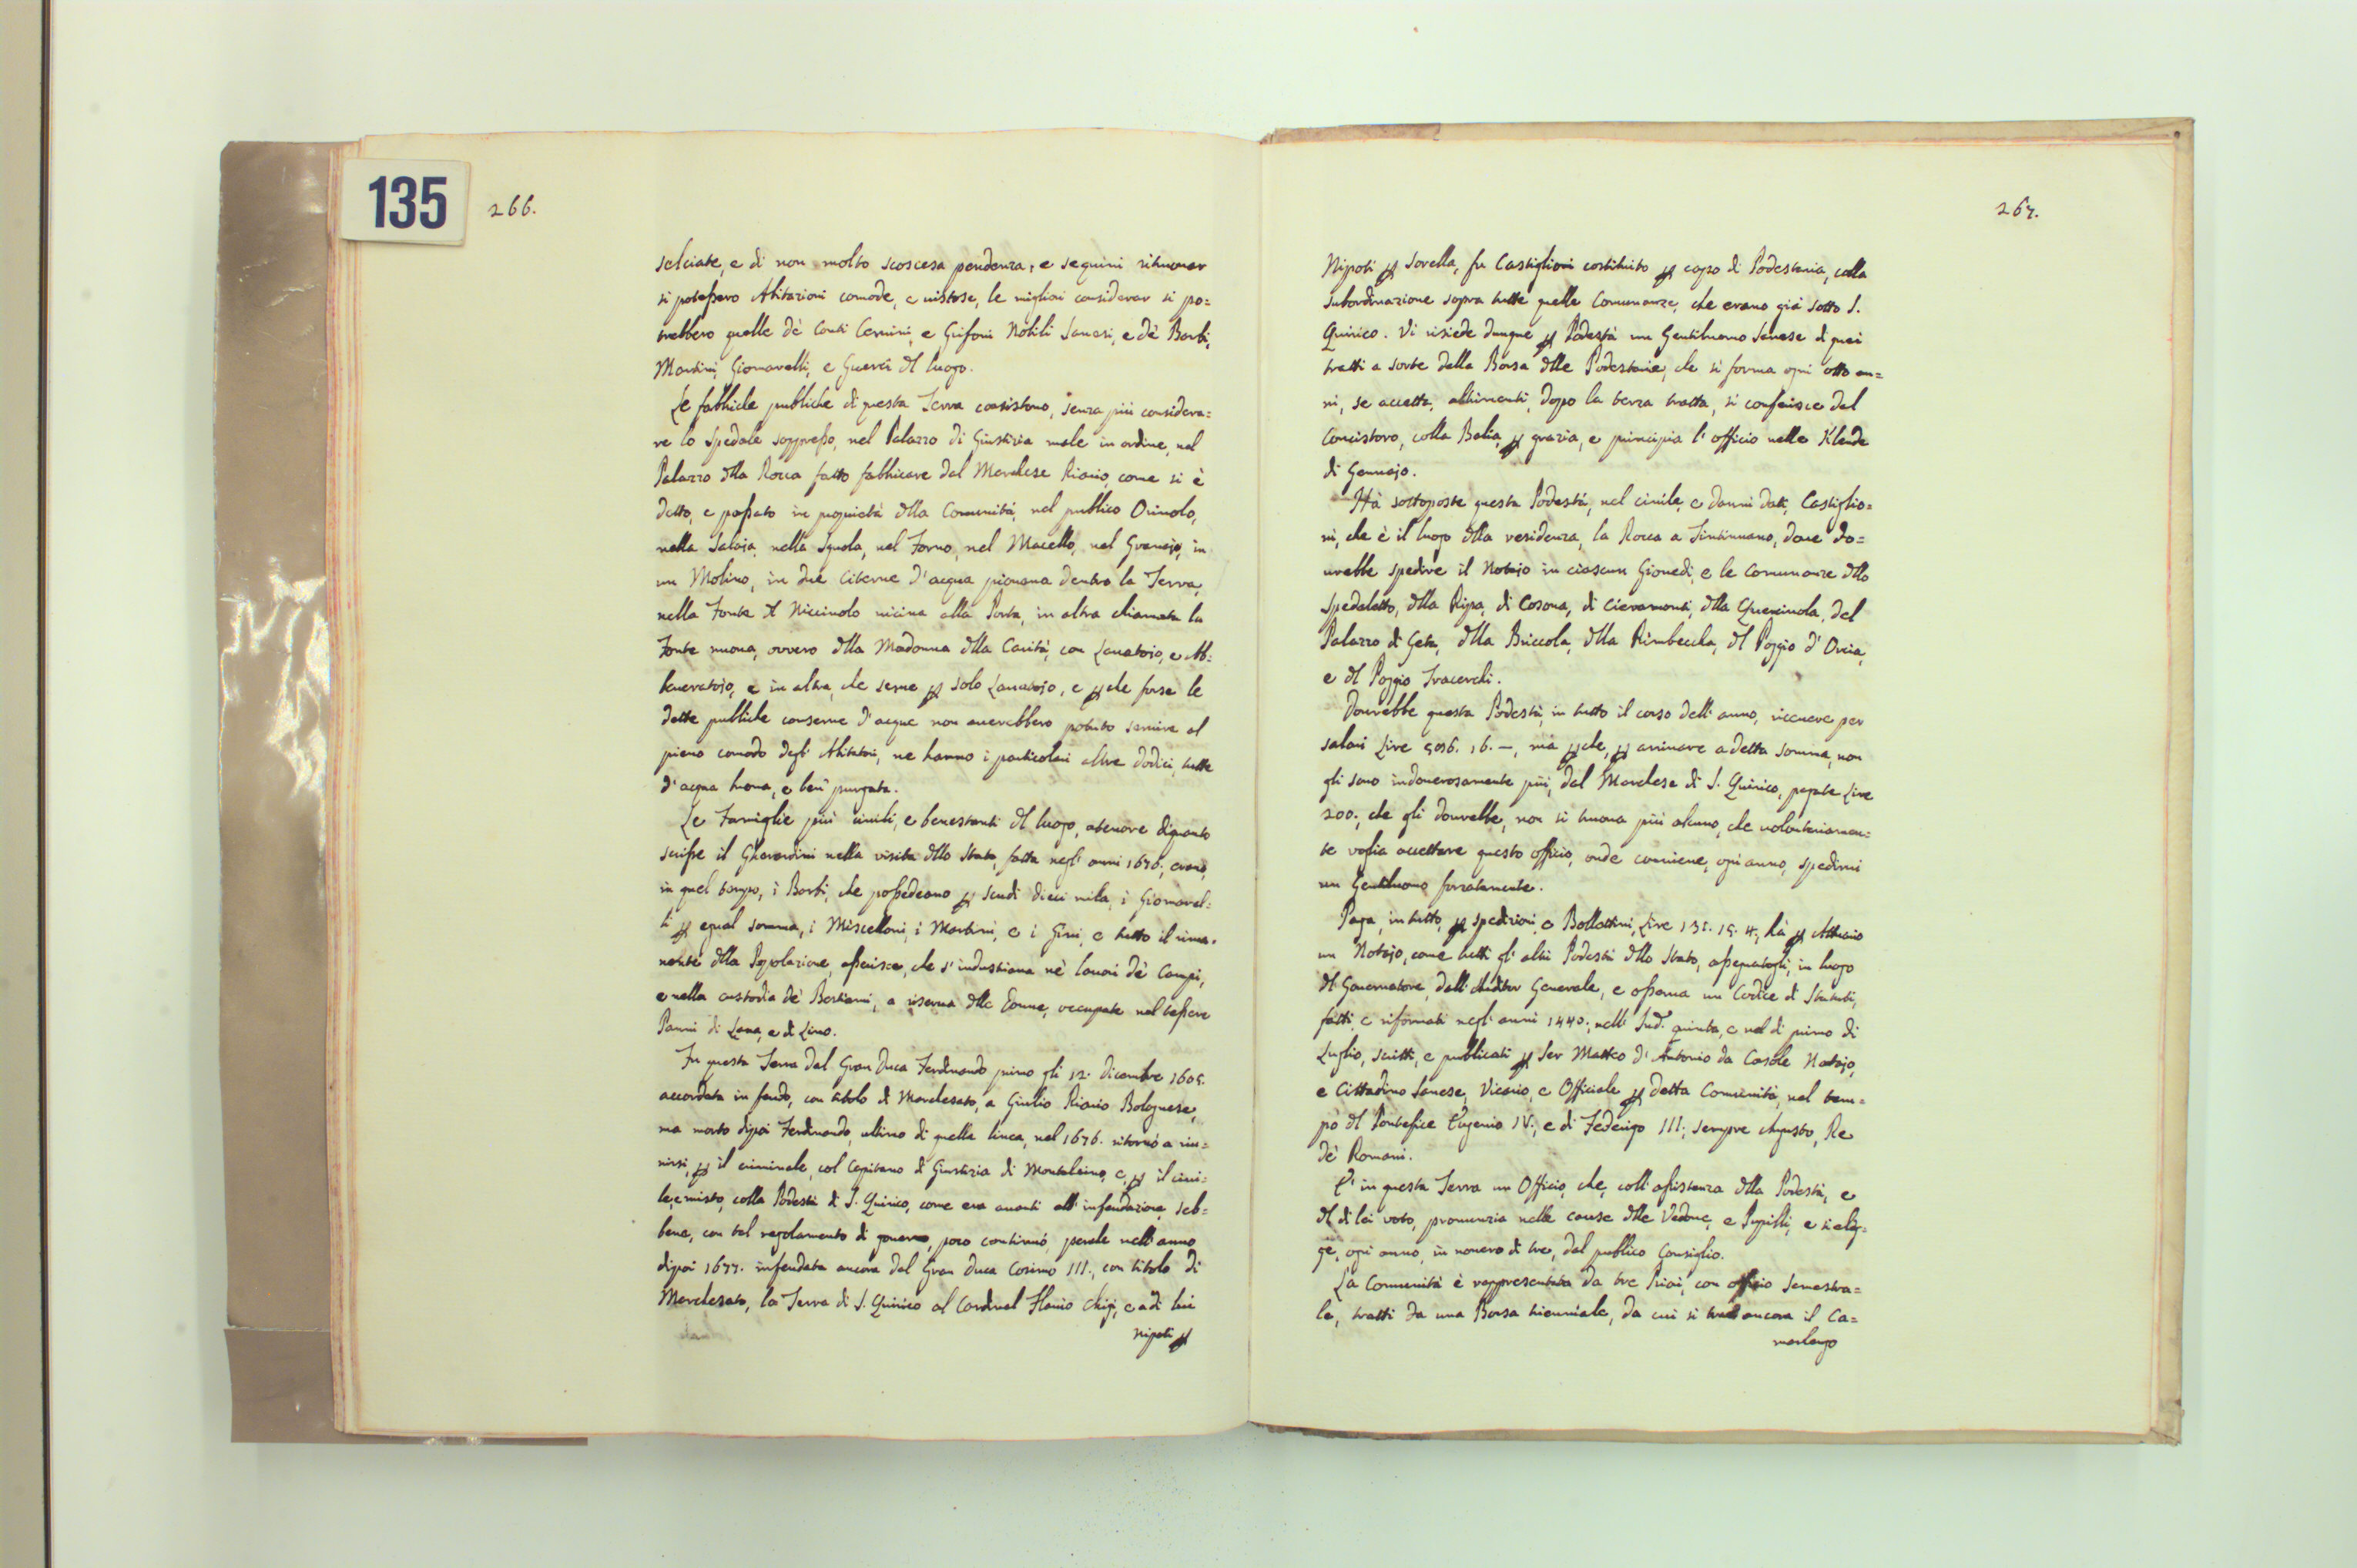 135
266.
selciate, e di non molto scoscesa pendenza, e seguivi ritruovar
si potessero Abitazioni comode, e vistose, le migliori considerar si po=
trebbero quelle dè Conti Cervini, e Grifoni Nobili Sanesi, e dè Barbi,
Martini, Giomarelli, e Guerri dl luogo.
Le fabbriche pubbliche di questa Terra consistono, senza più considera=
re lo Spedale soppresso, nel Palazzo di Giustizia male in ordine, nel
Palazzo dlla Rocca fatto fabbricare dal Marchese Riario, come si è
detto, e passato in proprietà dlla Comunità, nel pubblico Oriuolo,
nella Salaja, nella Squola, nel Forno, nel Macello, nel Granajo, in
un Molino, in due Citerne d'acqua piovana dentro la Terra,
nella Fonte dl Vicciuolo vicina alla Porta, in altra chiamata la
Fonte nuova, ovvero dlla Madonna dlla Carità, con Lavatojo, e Ab=
beveratojo, e in altra, che serve p solo Lavatojo, e p che forse le
dette pubbliche conserve d'acque non averebbero potuto servire al
pieno comodo degl' Abitatori, ne hanno i particolari altre dodici, tutte
d'acqua buona, e ben purgata.
Le Famiglie più civili, e benestanti dl luogo, atenore diquanto
scrisse il Gherardini nella visita dllo Stato, fatta negl' anni 1676, erano,
in quel tempo, i Barbi, che possedeano p scudi dieci mila, i Giomarel=
li p egual somma, i Miscelloni, i Martini, e i Gini, e tutto il rima=
nente dlla Popolazione, asserisce, che s'industriava nè lavori dè Campi,
e nella custodia dè Bestiami, a riserva dlle Donne, occupate nel tessere
Panni di Lana, e di Lino.
Fu questa Terra dal Gran Duca Ferdinando primo gli 12. Dicembre 1605.
accordata in feudo, con titolo di Marchesato, a Giulio Riario Bolognese,
ma morto dipoi Ferdinando, ultimo di quella linea, nel 1676. ritornò a riu=
nirsi, p il criminale, col Capitano di Giustizia di Montalcino, e, p il civi=
le, e misto, colla Podestà di S. Quirico, come era avanti all' infeudazione, seb=
bene, con tal regolamento di governo, poco continuò, perche nell' anno
dipoi 1677. infeudata ancora dal Gran Duca Cosimo III., con titolo di
Marchesato, la Terra di S. Quirico al Cardinal Flavio Chigi, e adi lui
nipoti p
267.
Nipoti p sorella, fu Castiglioni costituito p capo di Podestaria, colla
subordinazione sopra tutte quelle Comunanze, che erano già sotto S.
Quirico. Vi risiede dunque p Podestà un Gentiluomo Sanese di quei
tratti a sorte dalla Borsa dlle Podestarie, che si forma ogni otto an=
ni, se accetta, altrimenti, dopo la terza tratta, si conferisce dal
Concistoro, colla Balia, p grazia, e principia l'officio nelle Klende
di Gennajo.
Hà sottoposte questa Podestà, nel civile, e danni dati, Castiglio=
ni, che è il luogo dlla residenza, la Rocca a Tintinnano, dove do=
vrebbe spedire il Notajo in ciascun Giovedì, e le Comunanze dllo
Spedaletto, dlla Ripa, di Cosona, di Cievamonti, dlla Querciuola, del
Palazzo di Geta, dlla Briccola, dlla Rimbecca, dl Poggio d'Orcia,
e dl Poggio Tracerchi.
Dovrebbe questa Podestà, in tutto il corso dell' anno, ricevere per
salari Lire 506. 16. —, mà p che, p arrivare a detta somma, non
gli sono indoverosamente più, dal Marchese di S. Quirico, pagate Lire
200., che gli dovrebbe, non si truova più alcuno, che volontariamen=
te voglia accettare questo officio, onde conviene, ogni anno, spedirvi
un Gentiluomo forzatamente.
Paga, in tutto, p spedizioni, e Bollettini, Lire 131. 15. 4., hà p Attuario
un Notajo, come tutti gl' altri Podestà dllo Stato, assegnatogli, in luogo
dl Governatore, dall' Auditor Generale, e osserva un Codice di Statuti,
fatti, e riformati negl' anni 1440., nell' Ind. quinta, e nel dì primo di
Luglio, scritti, e pubblicati p Ser Matteo d'Antonio da Casole Notajo,
e Cittadino Sanese, Vicario, e Officiale p detta Comunità, nel tem=
po dl Pontefice Eugenio IV., e di Federigo III., sempre Augusto, Re
dè Romani.
E' in questa Terra un Officio, che, coll' assistenza dlla Podestà, e
dl di lei voto, pronunzia nelle cause dlle Vedove, e Pupilli, e si eleg=
ge, ogni anno, in novero di tre, dal pubblico Consiglio.
La Comunità è rappresentata da tre Priori, con officio semestra=
le, tratti da una Borsa triennale, da cui si trae ancora il Ca=
marlengo